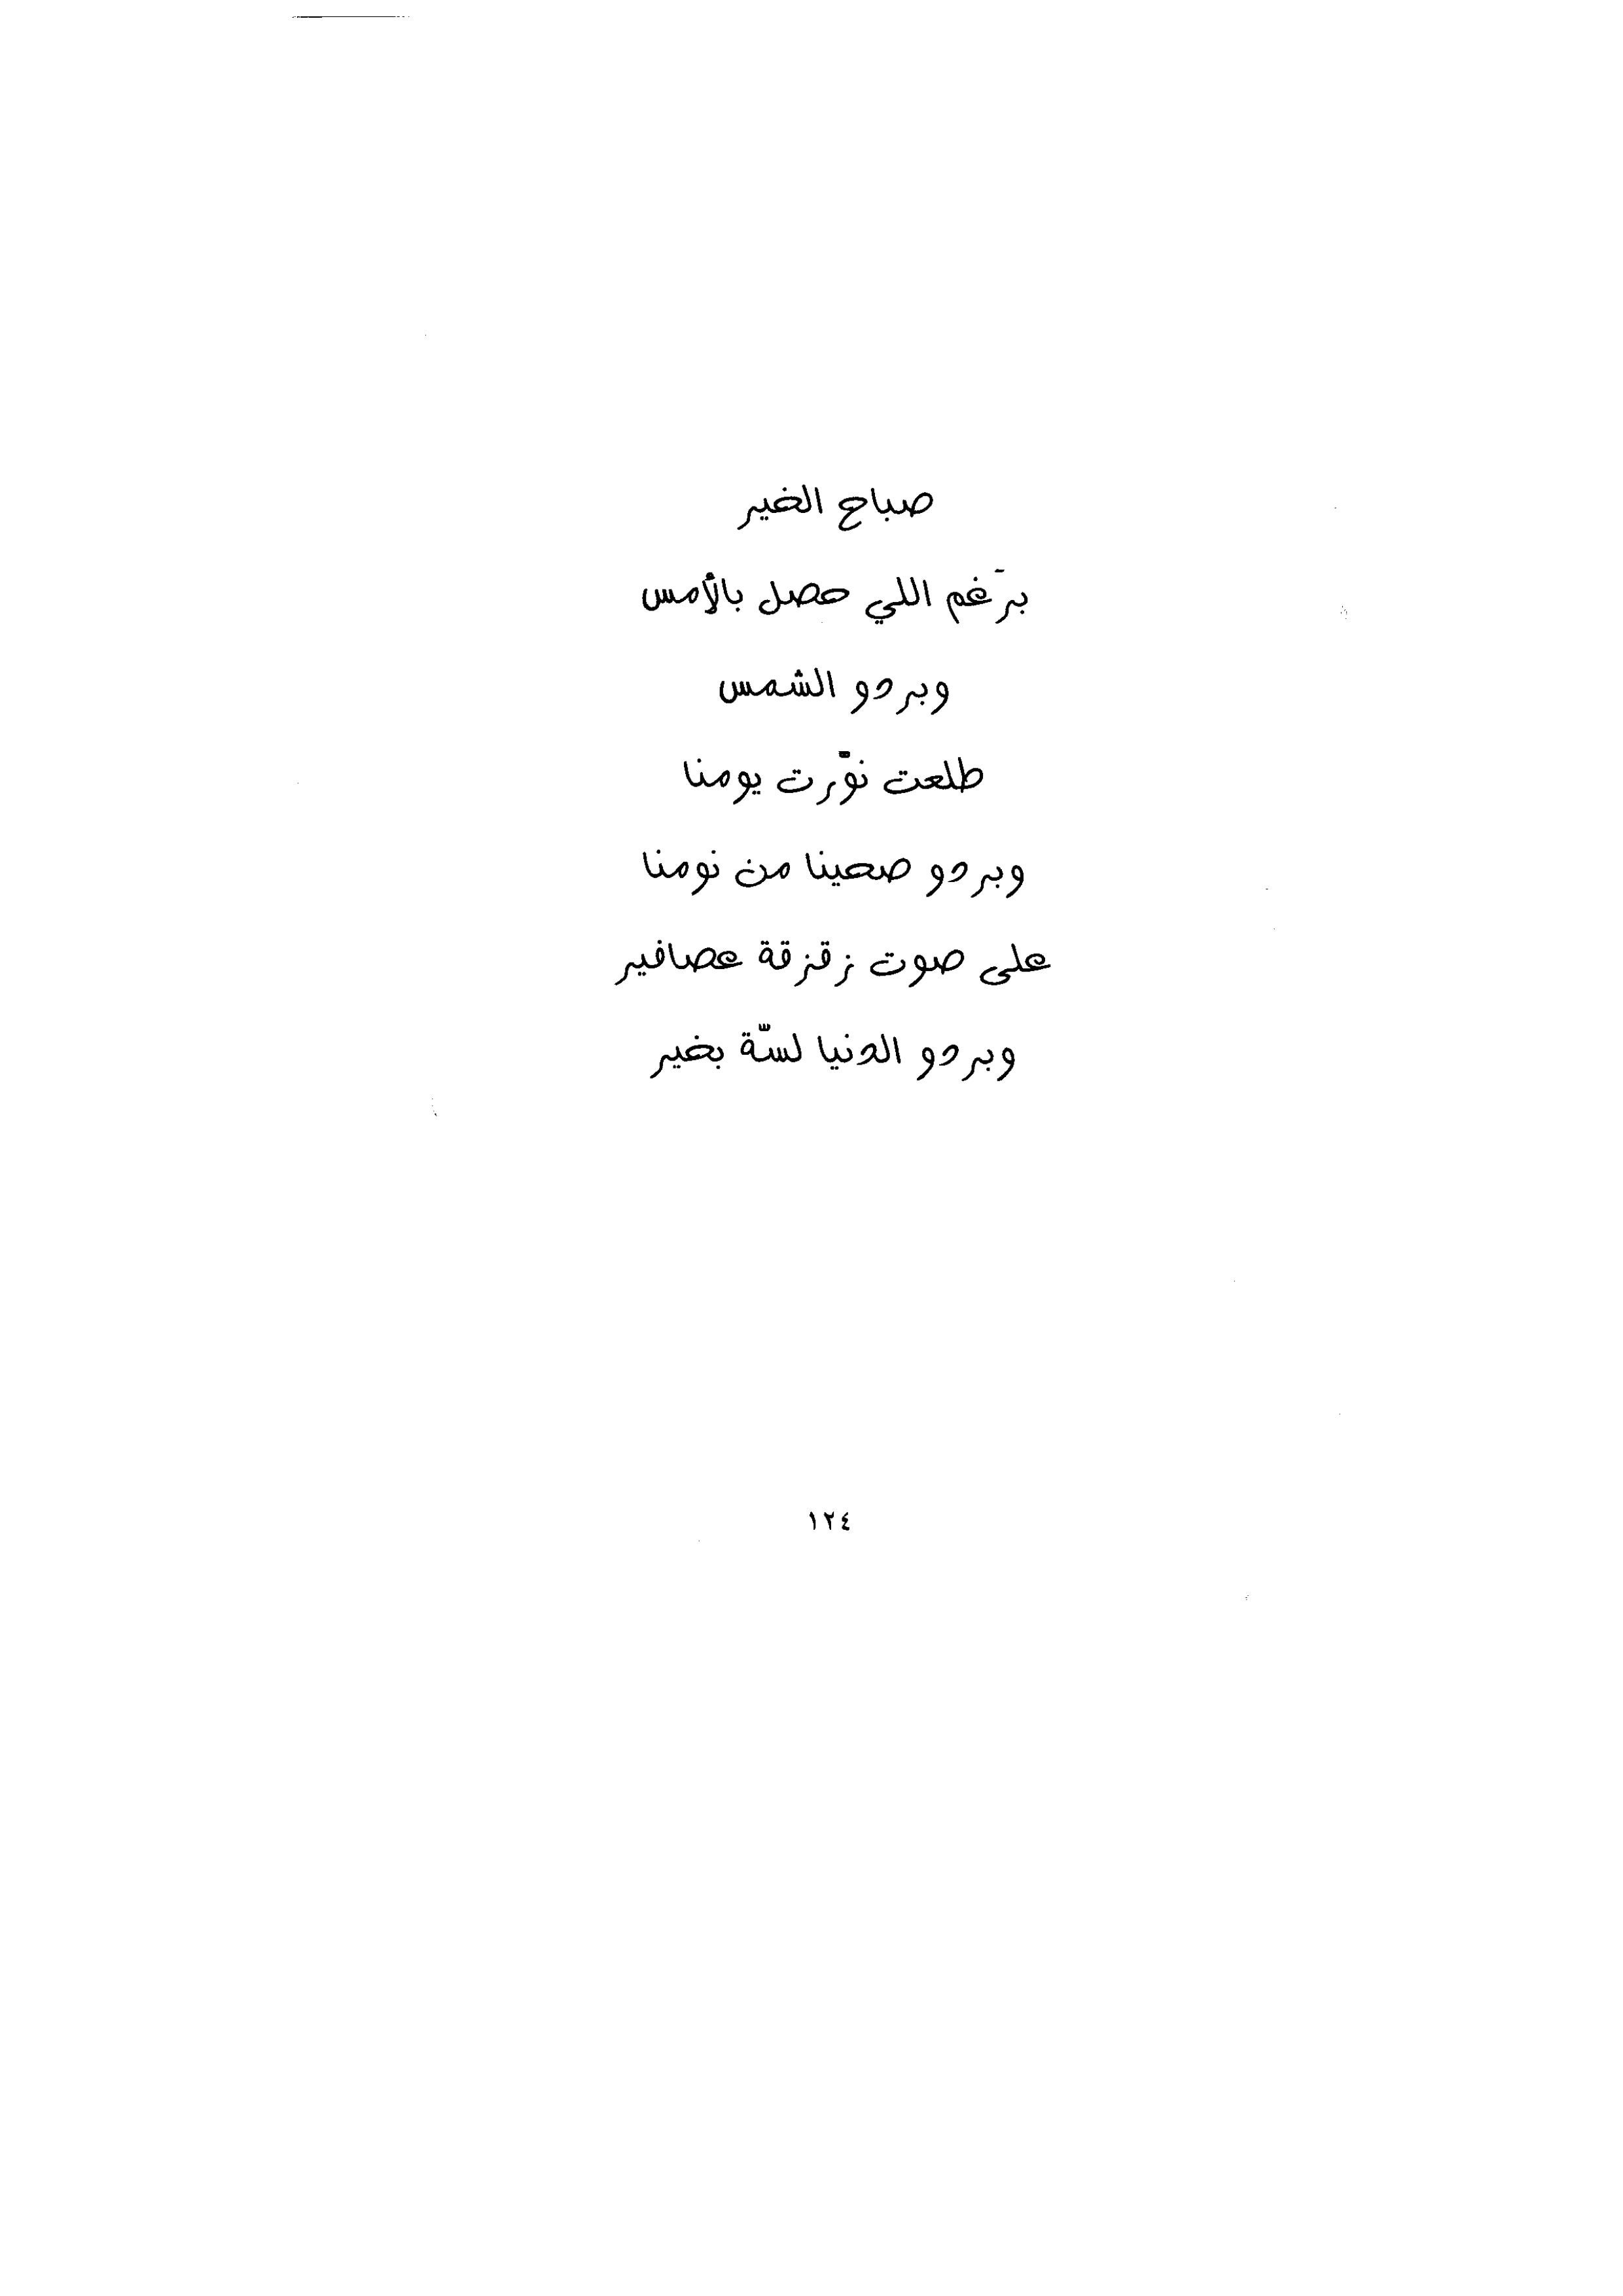 صباح الخير
برَغم اللي حصل بالأمس
وبردو الشمس
طلعت نوّرت يومنا
وبردو صحينا من نومنا
على صوت زقزقة عصافير
وبردو الدنيا لسّة بخير
١٢٤